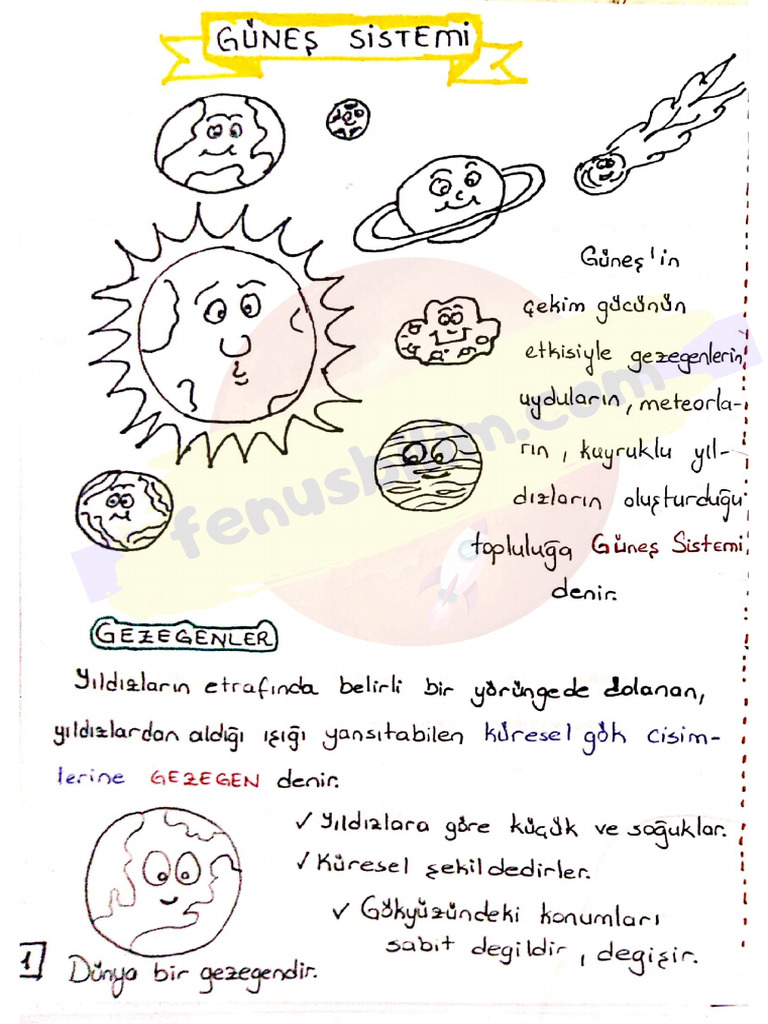 GÜNEŞ SİSTEMİ
Güneş'in
çekim gücünün
etkisiyle gezegenlerin,
uyduların, meteorla-
rın, kuyruklu yıl-
dızların oluşturduğu
topluluğa Güneş Sistemi
denir.
fenusbilim.com
GEZEGENLER
Yıldızların etrafında belirli bir yörüngede dolanan,
yıldızlardan aldığı ışığı yansıtabilen küresel gök cisim-
lerine GEZEGEN denir.
✓ Yıldızlara göre küçük ve soğuklar.
✓ Küresel şekildedirler.
✓ Gökyüzündeki konumları
sabit degildir, degişir.
1 Dünya bir gezegendir.